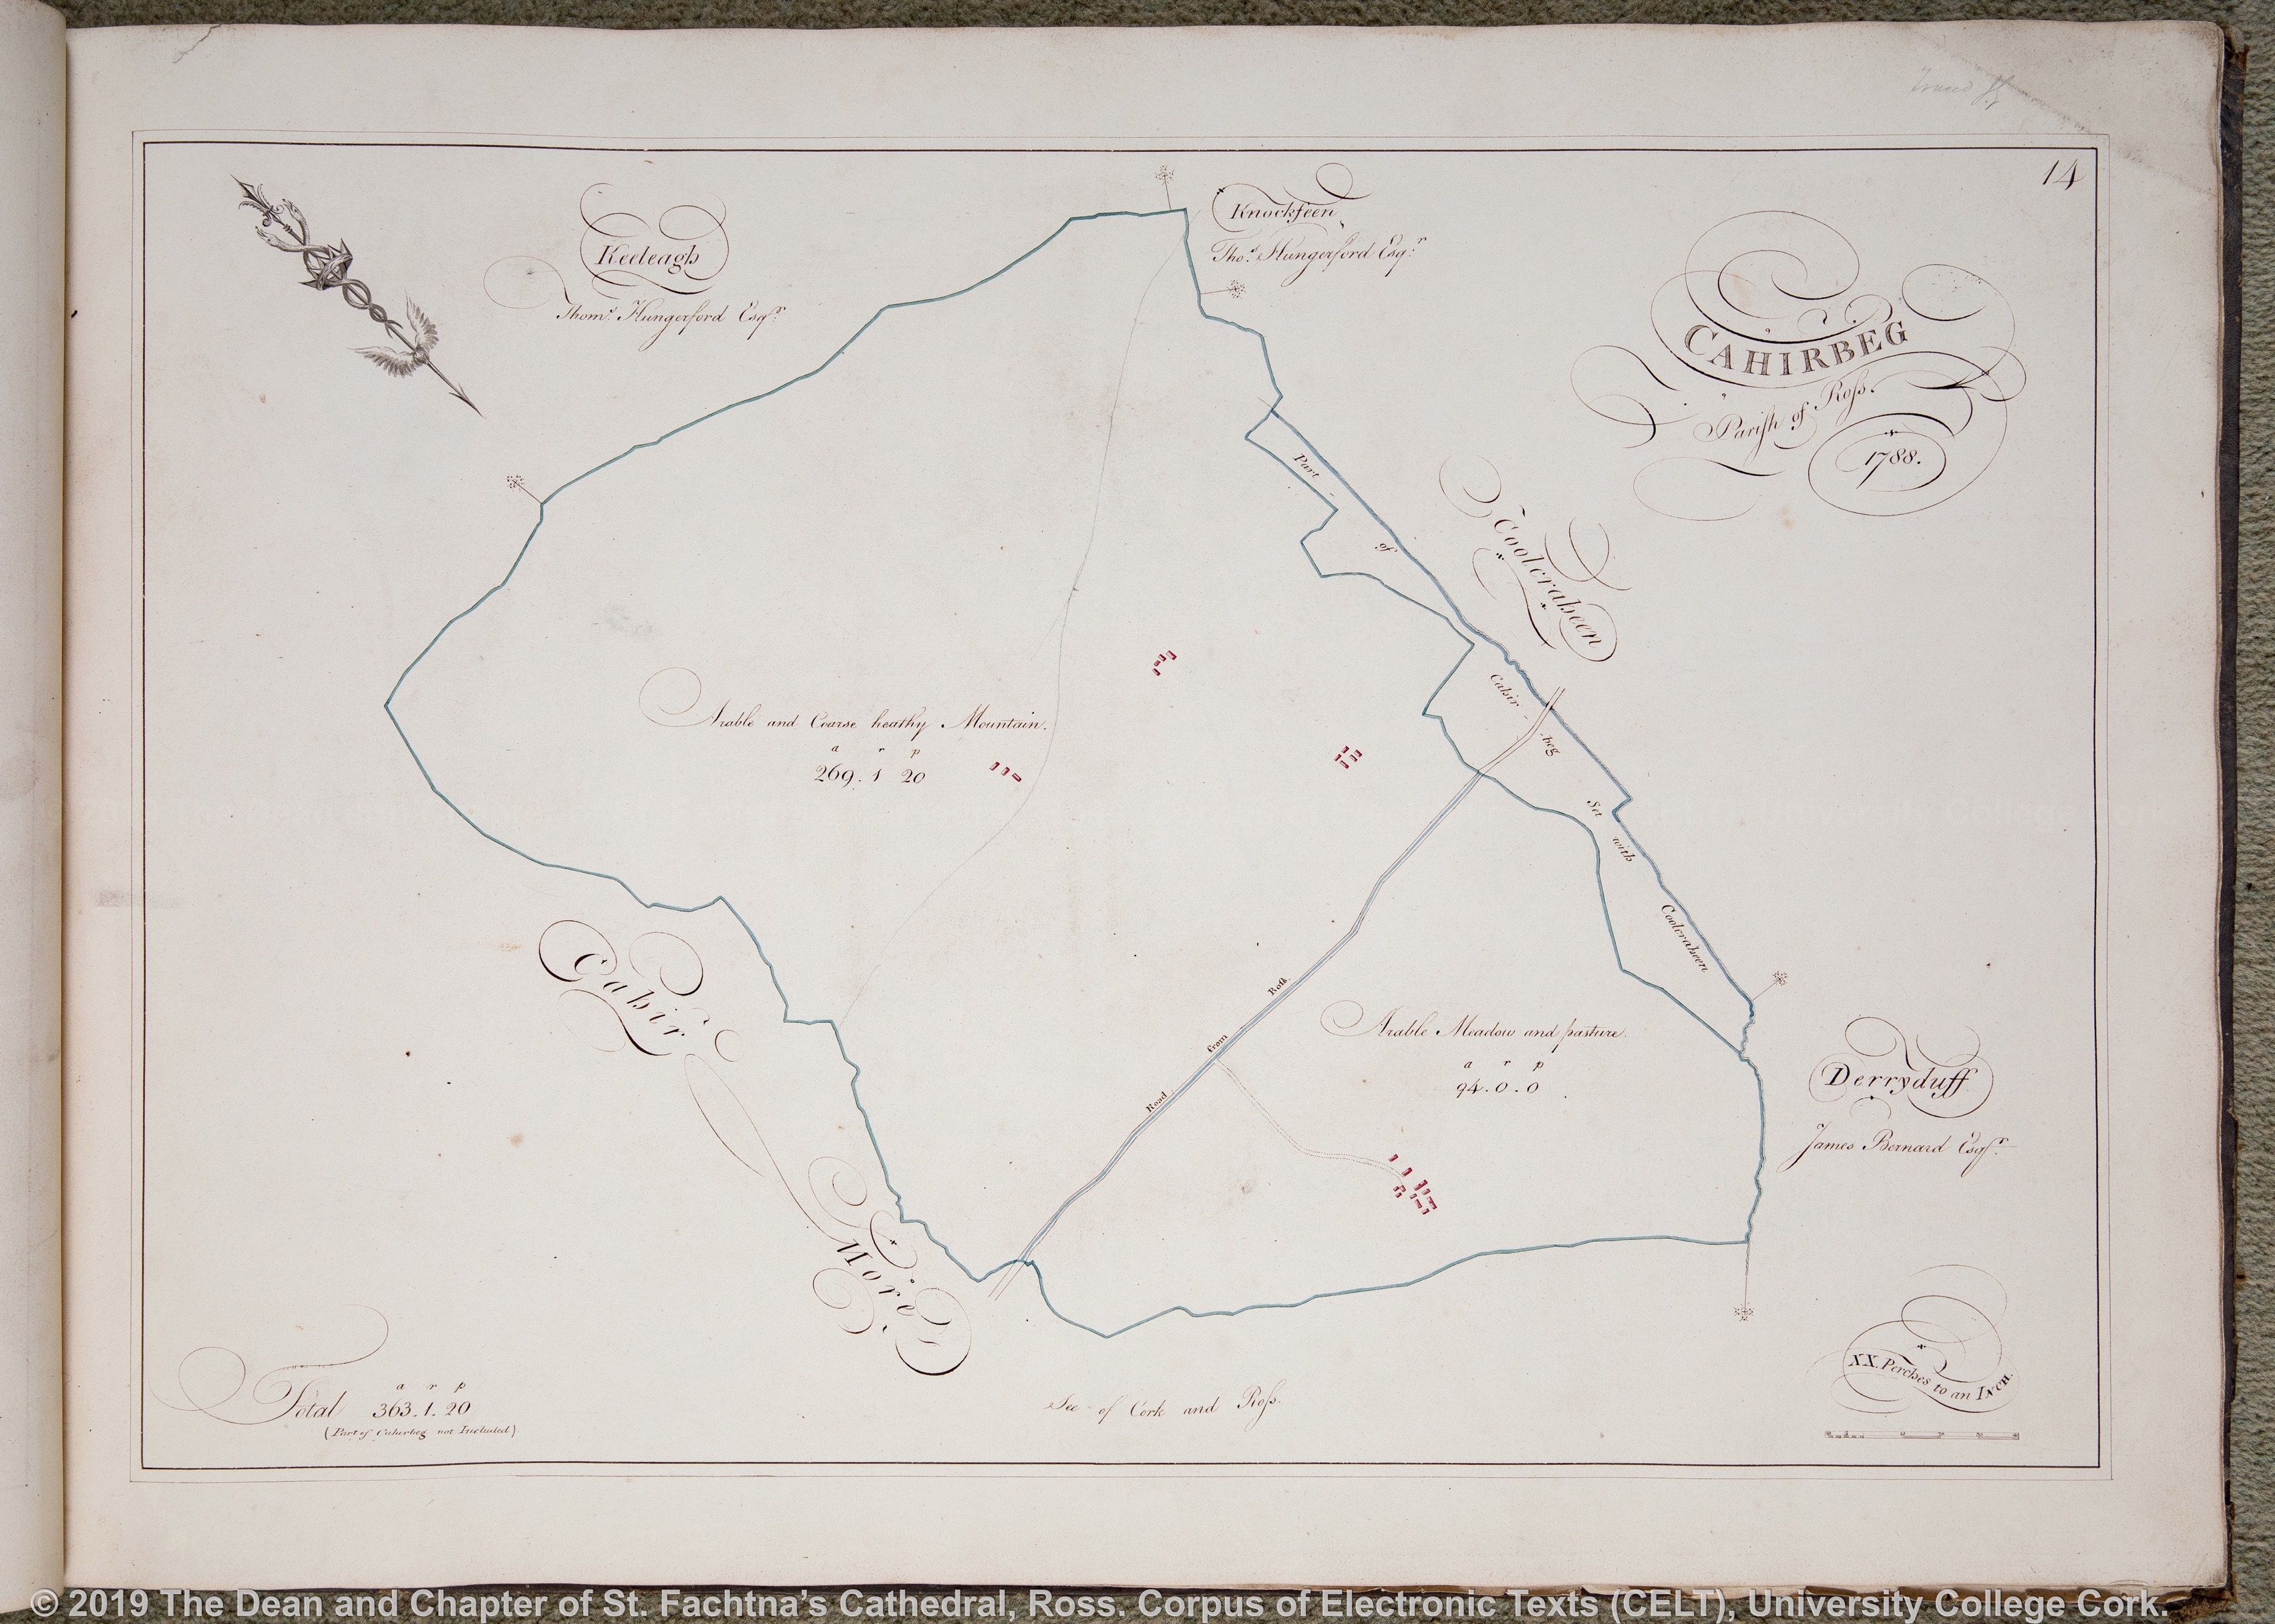 14
Keeleagh
Thom.s Hungerford Esq.r
Knockfeen
Tho.s Hungerford Esq.r
CAHIRBEG
Parish of Roſs.
1788.
Part of Cahir-beg Set with Coolcraheen
Coolcraheen
Arable and Coarse heathy Mountain.
a r p
269. 1 20
Cahir More
Road from Roſs
Arable Meadow and pasture.
a r p
94. 0. 0
Derryduff
James Bernard Esq.r
See of Cork and Roſs.
Total a r p
363. 1. 20
(Part of Cahirbeg not Included)
XX. Perches to an INCH.
© 2019 The Dean and Chapter of St. Fachtna’s Cathedral, Ross. Corpus of Electronic Texts (CELT), University College Cork.